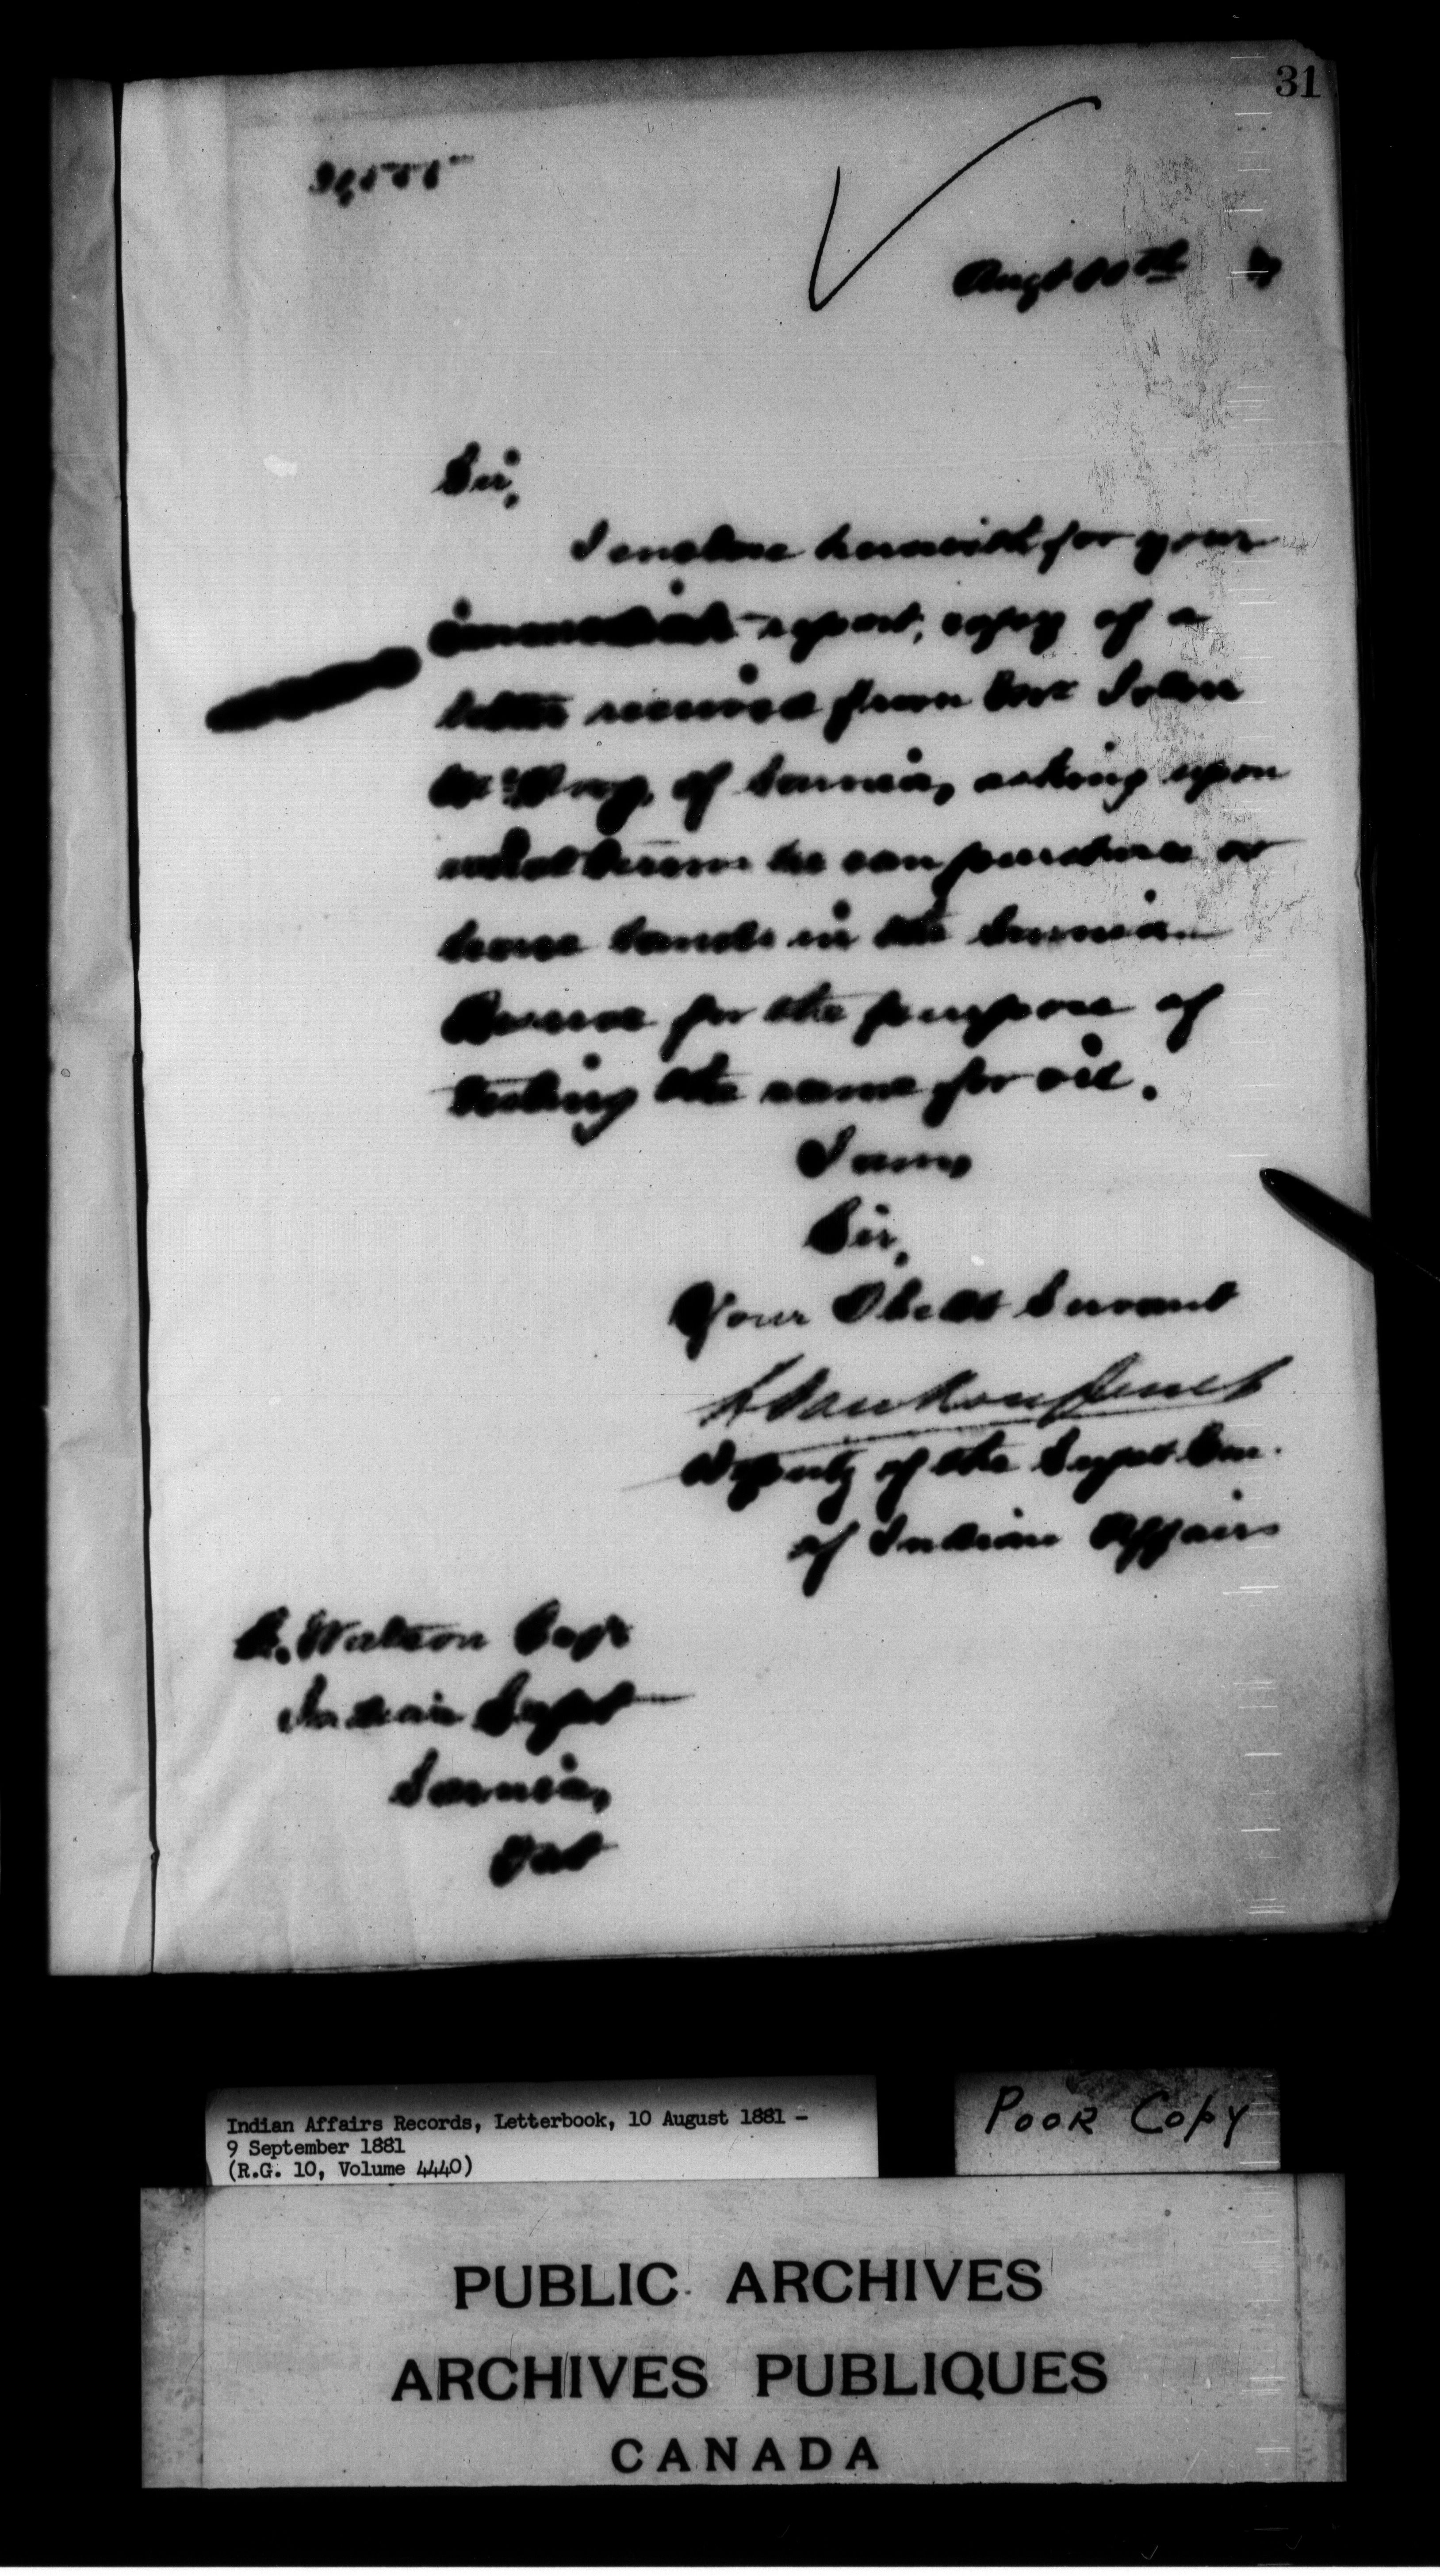 31
Augt 10th
Sir,
I enclose herewith for your
immediate report, copy of a
letter received from Mr John
of Sarnia, asking upon
what terms he can purchase or
lease lands in the Sarnia
Reserve for the purpose of
testing the same for oil.
I am,
Sir,
Your Obedt Servant
L Vankoughnet
Deputy of the Supt Gen.
of Indian Affairs
E. Watson Esqr
Indian Supt
Sarnia,
Ont
Indian Affairs Records, Letterbook, 10 August 1881 -
9 September 1881
(R.G. 10, Volume 4440)
POOR COPY
PUBLIC ARCHIVES
ARCHIVES PUBLIQUES
CANADA